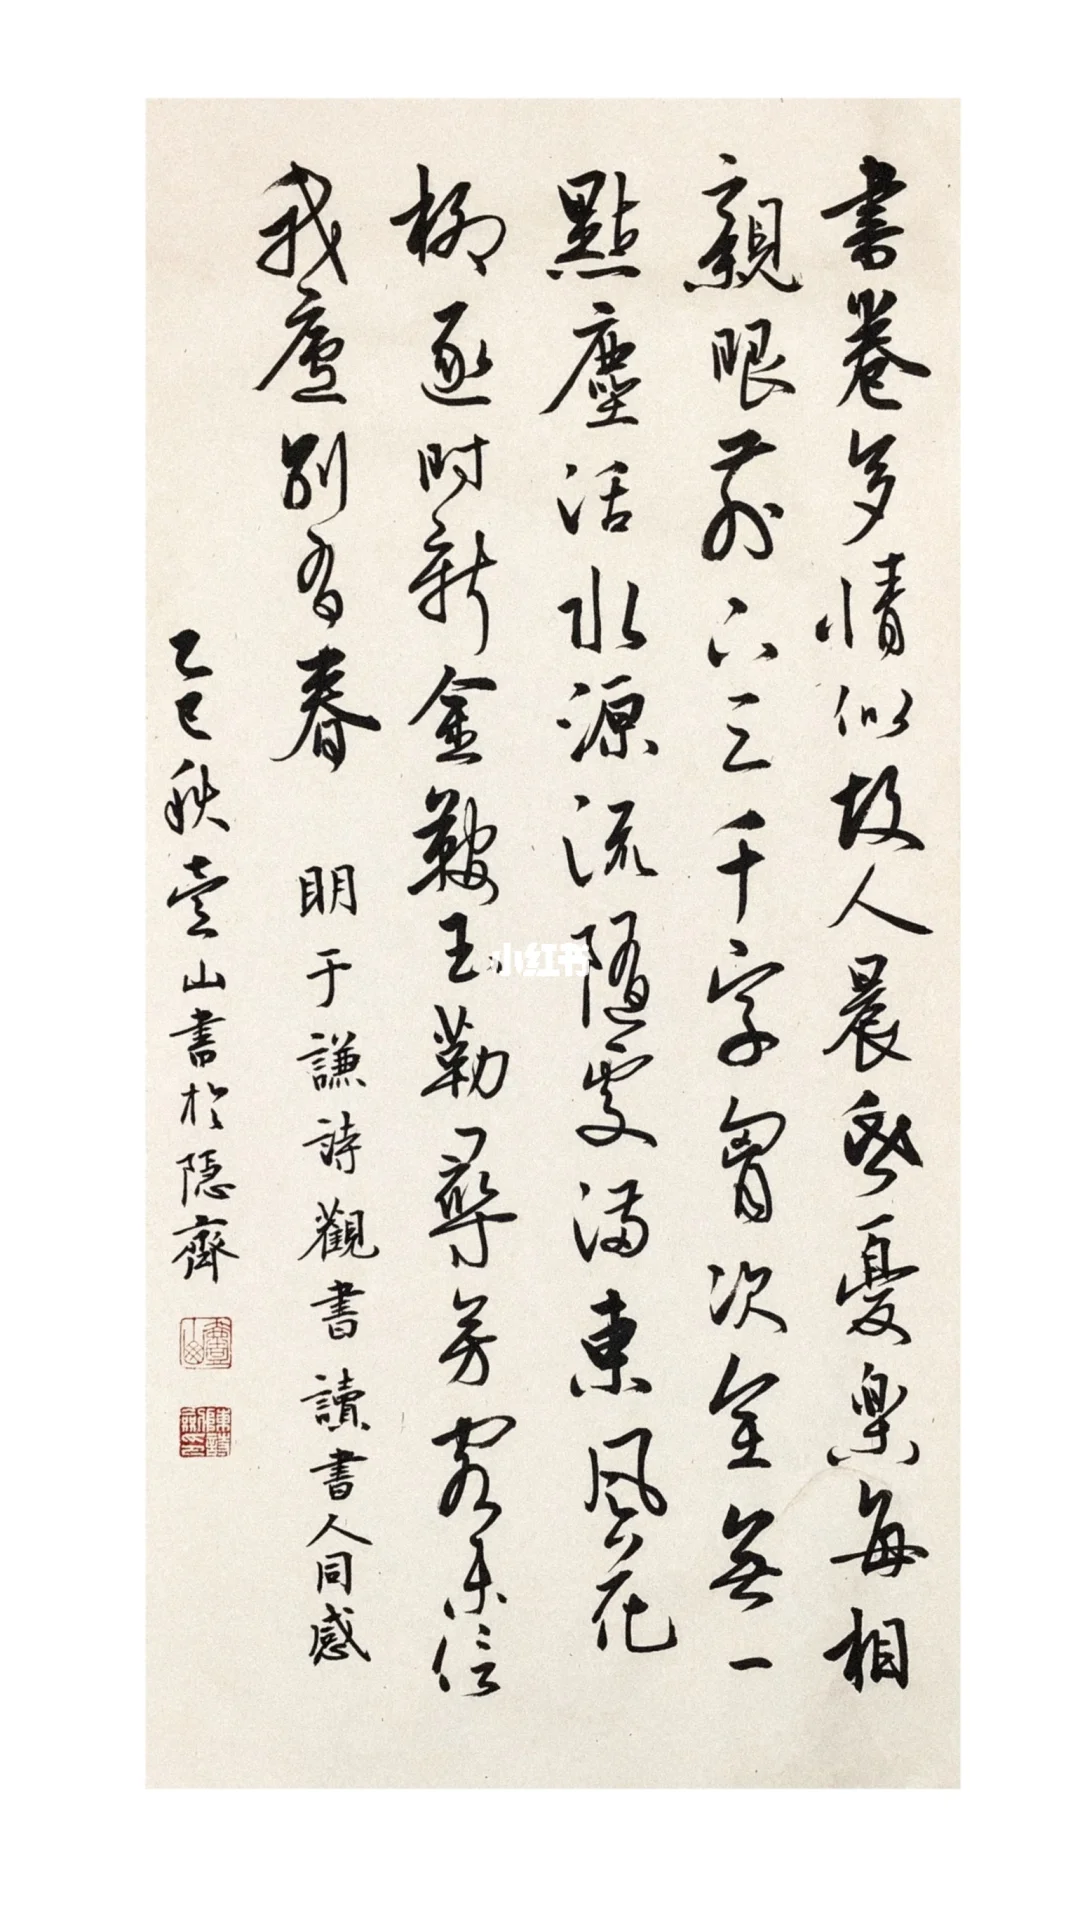 書卷多情似故人晨昏憂樂每相
親眼前下三千字胷次全無一
點塵活水源流隨處滿東風花
柳逐时新金鞍玉勒尋芳客未信
我廬別有春 明于謙詩觀書讀書人同感
乙巳秋山書於隱齊
小红书